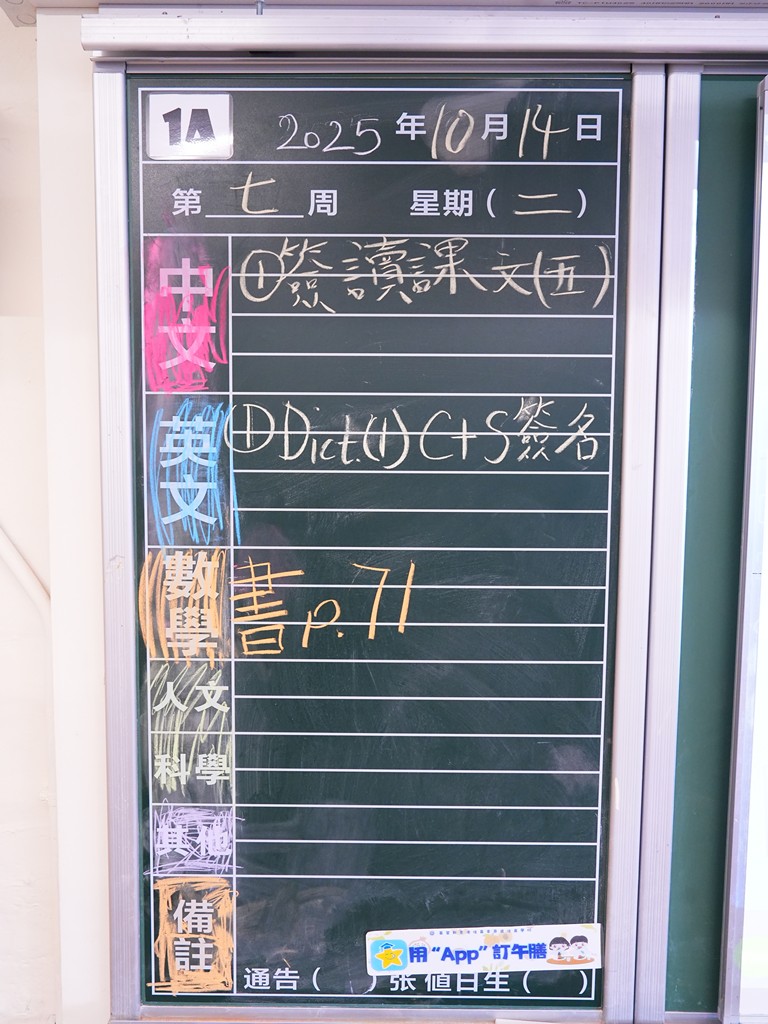 1A 2025 年 10 月 14 日
第 七 周 星期 ( 二 )
中文 ①簽讀課文(五)
英文 ①Dict.(1) C+S簽名
數學 書p.71
人文
科學
其他
備註
用 “App” 訂午膳
通告 ( ) 张 值日生 ( )